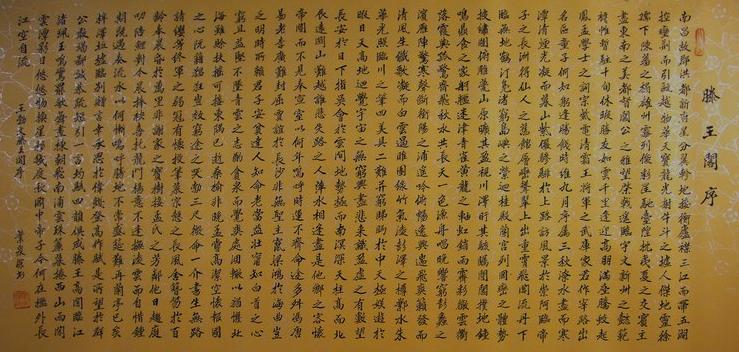 滕王閣序
南昌故郡洪都新府星分翼軫地接衡廬襟三江而帶五湖
控蠻荊而引甌越物華天寶龍光射牛斗之墟人傑地靈徐
孺下陳蕃之榻雄州霧列俊彩星馳臺隍枕夷夏之交賓主
盡東南之美都督閻公之雅望棨戟遙臨宇文新州之懿範
襜帷暫駐十旬休暇勝友如雲千里逢迎高朋滿座騰蛟起
鳳孟學士之詞宗紫電清霜王將軍之武庫家君作宰路出
名區童子何知躬逢勝餞時維九月序屬三秋潦水盡而寒
潭清煙光凝而暮山紫儼驂騑於上路訪風景於崇阿臨帝
子之長洲得仙人之舊館層巒聳翠上出重霄飛閣流丹下
臨無地鶴汀鳧渚窮島嶼之縈迴桂殿蘭宮列岡巒之體勢
披繡闥俯雕甍山原曠其盈視川澤盱其駭矚閭閻撲地鐘
鳴鼎食之家舸艦迷津青雀黃龍之舳虹銷雨霽彩徹雲衢
落霞與孤鶩齊飛秋水共長天一色漁舟唱晚響窮彭蠡之
濱雁陣驚寒聲斷衡陽之浦遙吟俯暢逸興遄飛爽籟發而
清風生纖歌凝而白雲遏睢園綠竹氣凌彭澤之樽鄴水朱
華光照臨川之筆四美具二難并窮睇眄於中天極娛遊於
暇日天高地迥覺宇宙之無窮興盡悲來識盈虛之有數望
長安於日下指吳會於雲間地勢極而南溟深天柱高而北
辰遠關山難越誰悲失路之人萍水相逢盡是他鄉之客懷
帝閽而不見奉宣室以何年嗚呼時運不齊命途多舛馮唐
易老李廣難封屈賈誼於長沙非無聖主竄梁鴻於海曲豈
乏明時所賴君子安貧達人知命老當益壯寧知白首之心
窮且益堅不墜青雲之志酌貪泉而覺爽處涸轍以猶懽北
海雖賒扶搖可接東隅已逝桑榆非晚孟嘗高潔空懷報國
之心阮籍猖狂豈效窮途之哭勃三尺微命一介書生無路
請纓等終軍之弱冠有懷投筆慕宗愨之長風舍簪笏於百
齡奉晨昏於萬里非謝家之寶樹接孟氏之芳鄰他日趨庭
叨陪鯉對今晨捧袂喜托龍門楊意不逢撫凌雲而自惜鍾
期既遇奏流水以何慚嗚呼勝地不常盛筵難再蘭亭已矣
梓澤坵墟臨別贈言幸承恩於偉餞登高作賦是所望於群
公敢竭鄙誠恭疏短引一言均賦四韻俱成滕王高閣臨江
渚珮玉鳴鸞罷歌舞畫棟朝飛南浦雲珠簾暮捲西山雨閒
雲潭影日悠悠物換星移幾度秋閣中帝子今何在檻外長
江空自流
王勃文滕王閣序